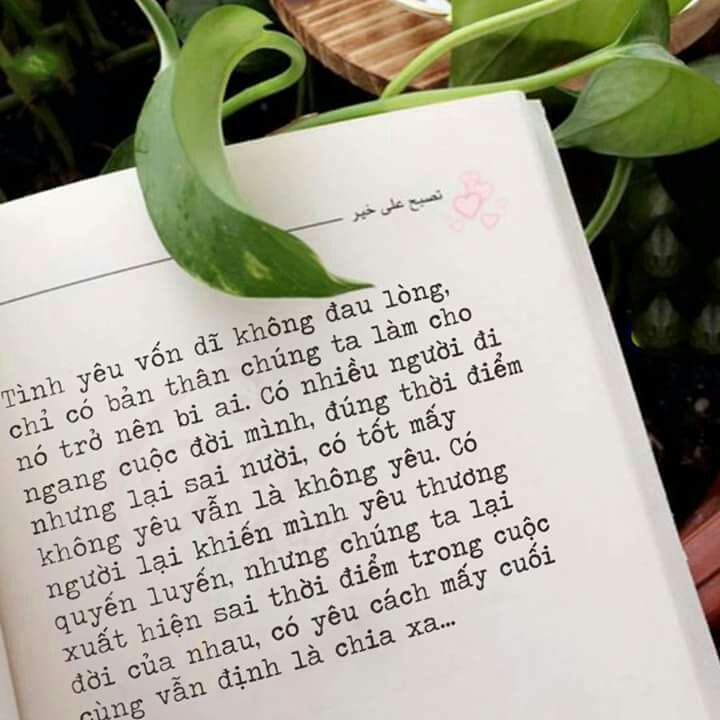 تصبح على خير
Tình yêu vốn dĩ không đau lòng,
chỉ có bản thân chúng ta làm cho
nó trở nên bi ai. Có nhiều người đi
ngang cuộc đời mình, đúng thời điểm
nhưng lại sai nười, có tốt mấy
không yêu vẫn là không yêu. Có
người lại khiến mình yêu thương
quyến luyến, nhưng chúng ta lại
xuất hiện sai thời điểm trong cuộc
đời của nhau, có yêu cách mấy cuối
cùng vẫn định là chia xa…